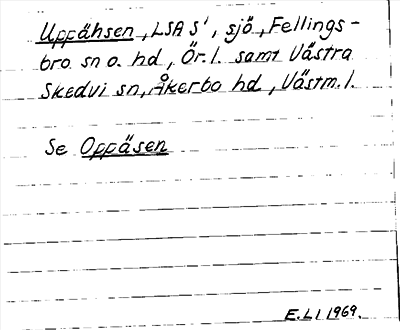 Uppähsen, LSA S', sjö, Fellings-
bro sn o. hd, Ör. l. samt Västra
Skedvi sn, Åkerbo hd, Västm. l.
Se Oppäsen
E.L! 1969.